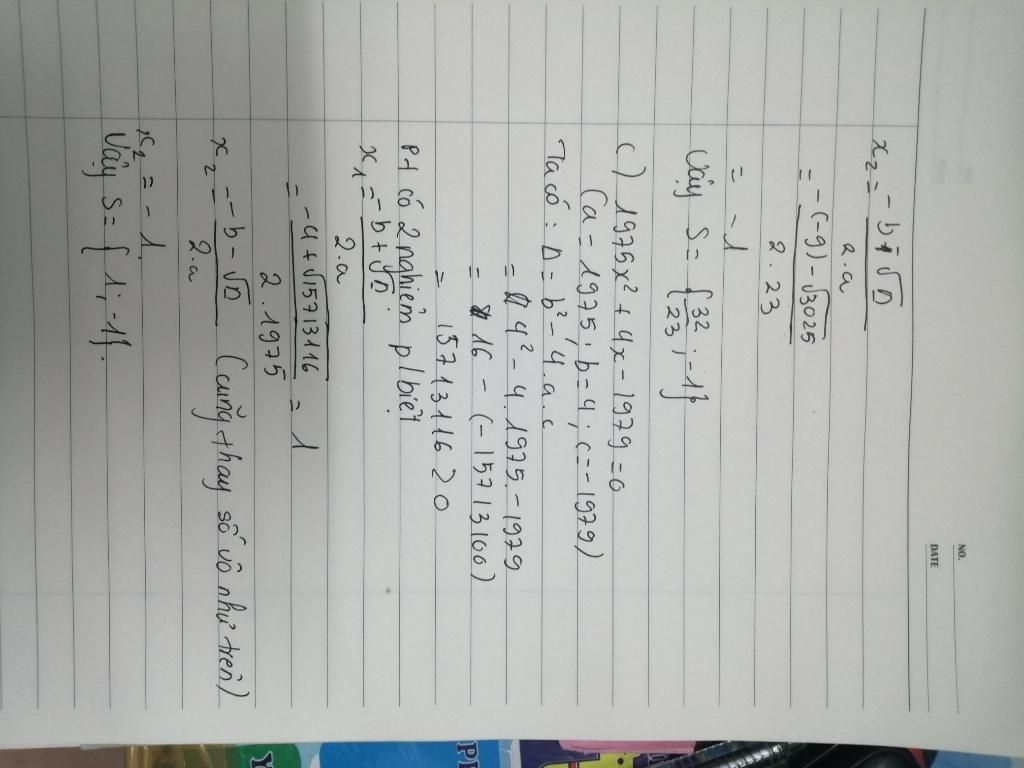 NO.
DATE
x₂ = -b - √Δ
2.a
= -(-9) - √3025
2.23
= -1
Vậy S = {32/23 ; -1}
c) 1975x² + 4x - 1979 = 0
(a = 1975 ; b = 4 ; c = -1979)
Ta có : Δ = b² - 4.a.c
= 4² - 4.1975.-1979
= 16 - (-15713100)
= 15713116 ≥ 0
PT có 2 nghiệm p/biệt
x₁ = -b + √Δ
2.a
= -4 + √15713116 = 1
2.1975
x₂ = -b - √Δ (cũng thay số vô như trên)
2.a
x₂ = -1
Vậy S = {1 ; -1}.